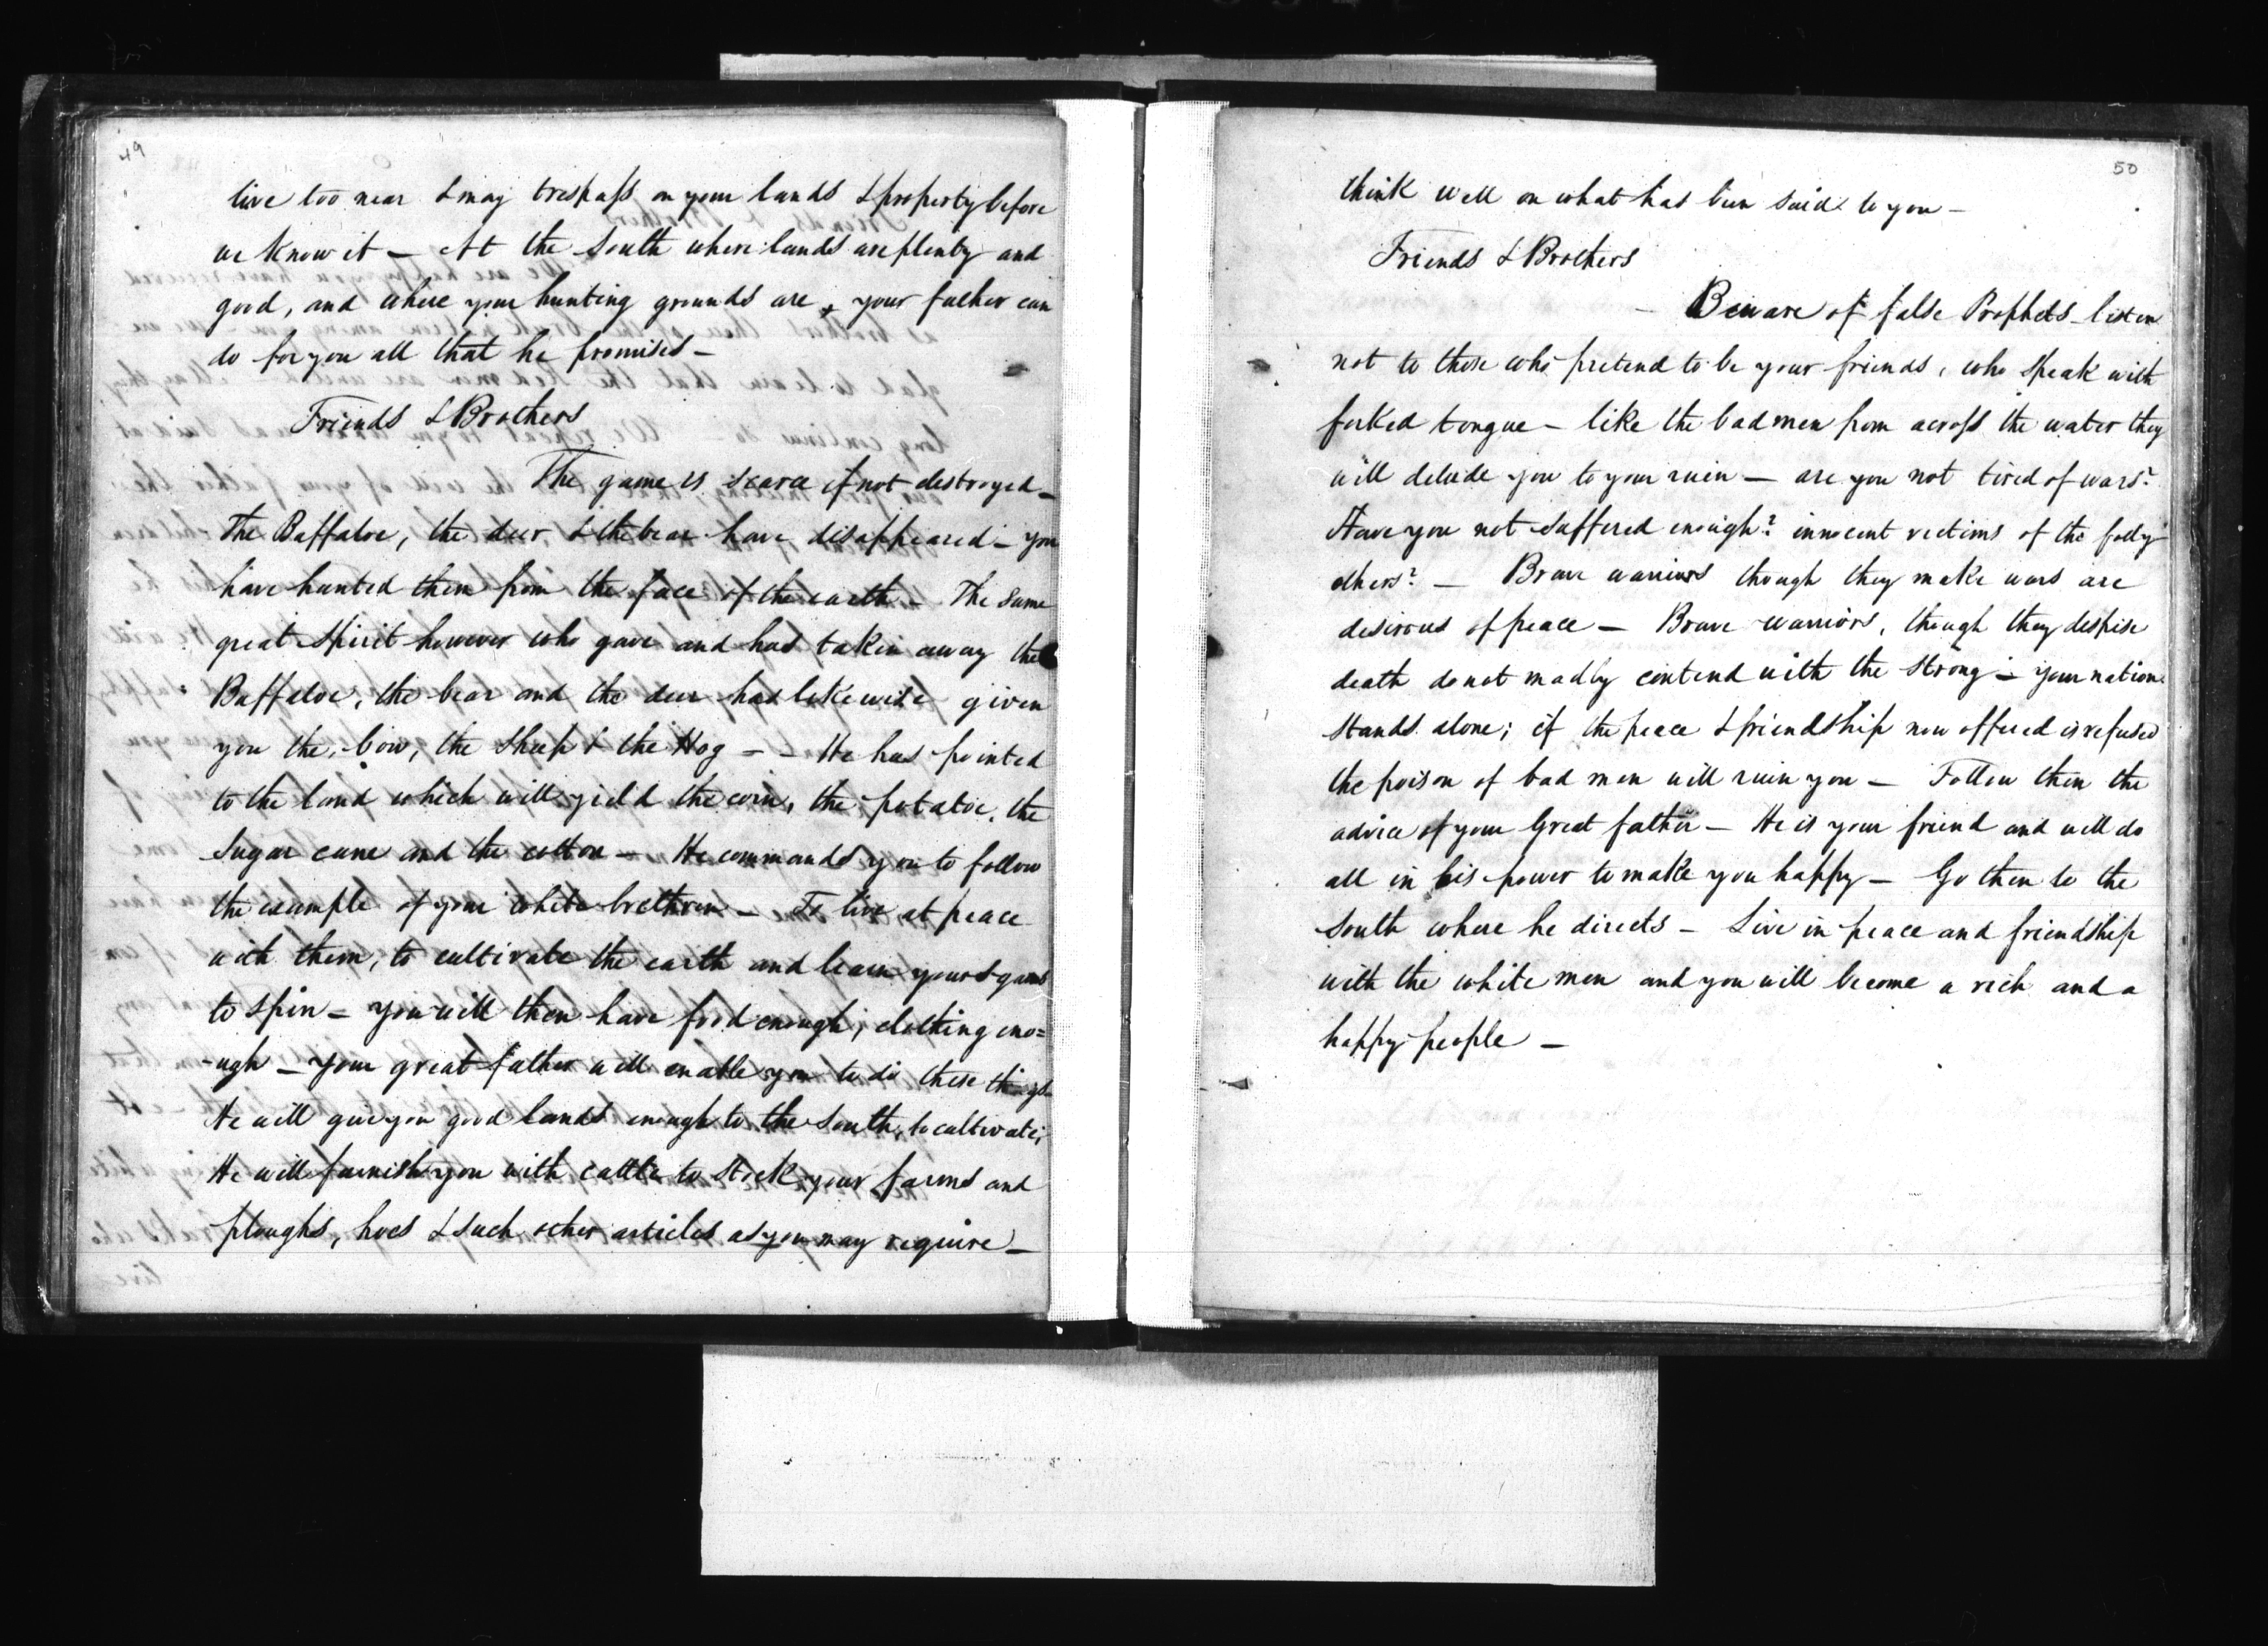 49
live too near & may trespass on your lands & property before
we know it — At the South where lands are plenty and
good, and where your hunting grounds are, your father can
do for you all that he promises —
Friends & Brothers
The game is scarce if not destroyed —
The Buffaloe, the deer & the bear have disappeared — you
have hunted them from the face of the earth — The same
great Spirit however who gave and has taken away the
Buffaloe, the bear and the deer has likewise given
you the cow, the sheep & the Hog — — He has pointed
to the land which will yield the corn, the potatoe, the
Sugar cane and the cotton — He commands you to follow
the example of your white brethren — To live at peace
with them, to cultivate the earth and learn your squaws
to spin — you will then have food enough, clothing eno=
-ugh — your great father will enable you to do these things
He will give you good lands enough to the South, to cultivate,
He will furnish you with cattle to stock your farms and
ploughs, hoes & such other articles as you may require —
50
think well on what has been said to you —
Friends & Brothers
— Beware of false Prophets — listen
not to those who pretend to be your friends, who speak with
forked tongue — like the bad men from across the water they
will delude you to your ruin — are you not tired of wars?
Have you not suffered enough? innocent victims of the folly
others? — Brave warriors though they make wars are
desirous of peace — Brave warriors, though they despise
death do not madly contend with the Strong — your nation
stands alone; if the peace & friendship now offered is refused
the poison of bad men will ruin you — Follow then the
advice of your Great father — He is your friend and will do
all in his power to make you happy — Go then to the
South where he directs — Live in peace and friendship
with the white men and you will become a rich and a
happy people —